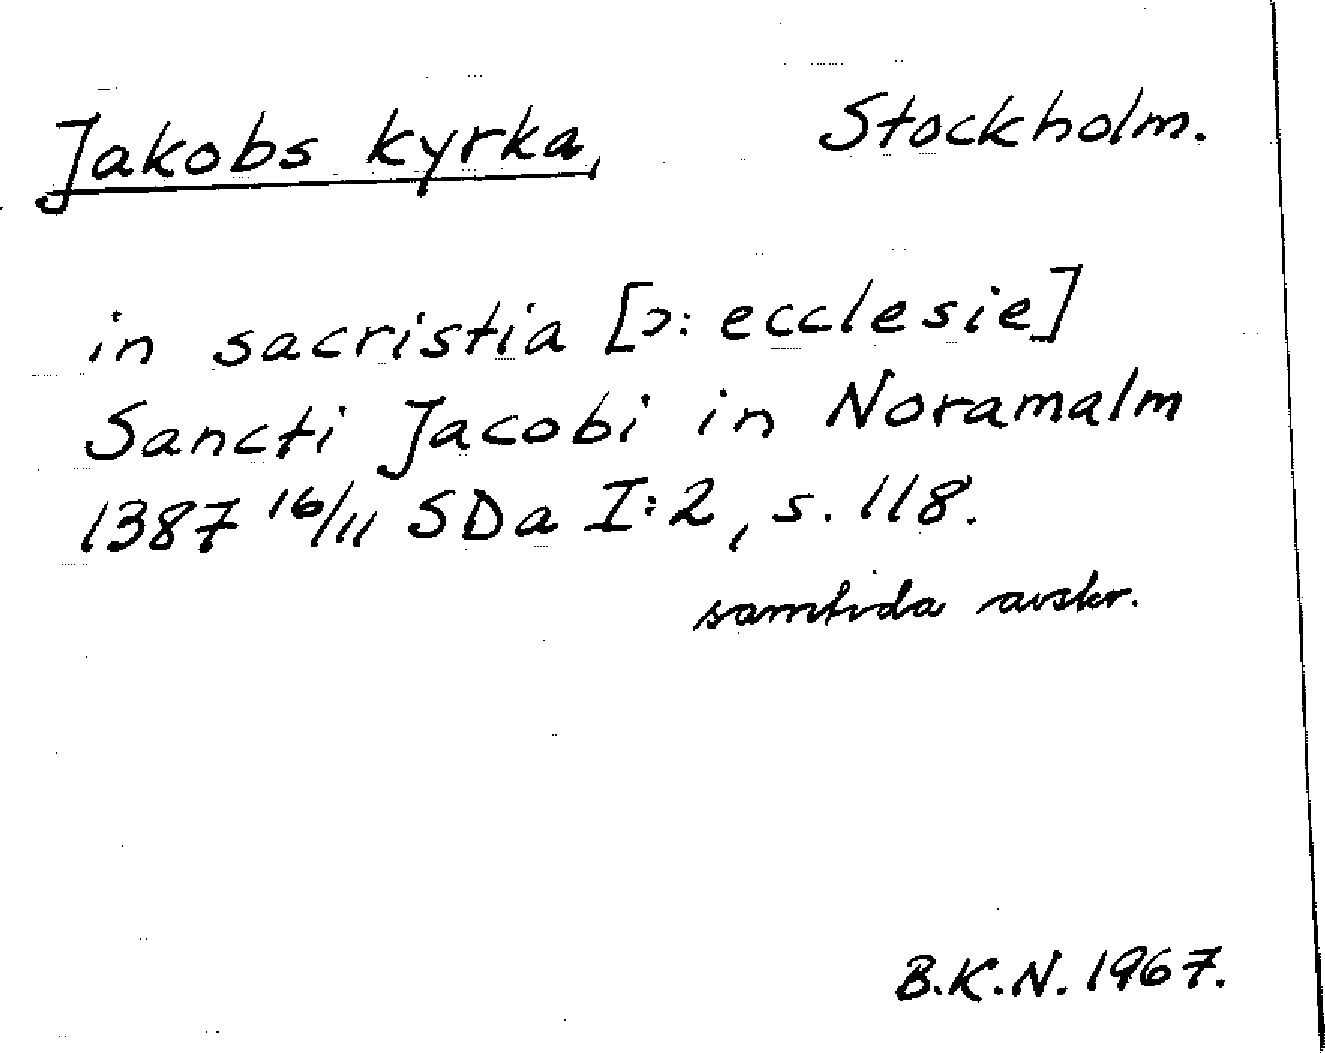 Jakobs kyrka, Stockholm.
in sacristia [ɔ: ecclesie]
Sancti Jacobi in Noramalm
1387 16/11 SDa I:2, s. 118.
samtida avskr.
B.K.N. 1967.